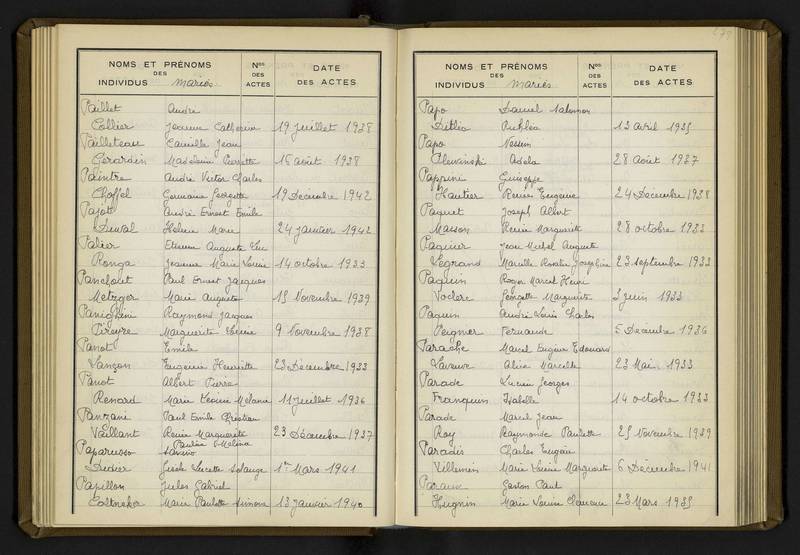 NOMS ET PRÉNOMS DES INDIVIDUS mariés Nos DES ACTES DATE DES ACTES
Paillet André
Collier Jeanne Catherine 19 juillet 1938
Pailleteau Camille Jean
Gérardin Madeleine Pierrette 16 août 1938
Paintre André Victor Charles
Choffel Germaine Georgette 19 Décembre 1942
Pajot André Ernest Emile
Duval Hélène Marie 24 janvier 1942
Palier Etienne Auguste Luc
Ronga Jeanne Marie Louise 14 octobre 1933
Panchout Paul Ernest Jacques
Metzger Marie Augusta 15 Novembre 1939
Panighini Raymond Jacques
Pireyre Marguerite Louise 9 Novembre 1938
Panot Emile
Lançon Eugénie Henriette 23 Décembre 1933
Panot Albert Pierre
Renard Marie Léonie Mélanie 11 juillet 1936
Panzani Paul Emile Christian
Vaillant Renée Marguerite Pauline Mélina 23 Décembre 1937
Paparusso
Didier Gisèle Lucette Solange 1er Mars 1941
Papillon Jules Gabriel
Marie Paulette Simone 13 janvier 1940
NOMS ET PRÉNOMS DES INDIVIDUS mariés Nos DES ACTES DATE DES ACTES
Papo Daniel Salomon
13 avril 1935
Papo Nessim
Adela 28 août 1937
Pappini Guiseppe
Hautier Renée Eugénie 24 Décembre 1938
Paquet Joseph Albert
Masson Renée Marguerite 28 octobre 1933
Paquier Jean Michel Auguste
Legrand Marcelle Rosalie Joséphine 23 septembre 1933
Paquin Roger Marcel Henri
Voclere Georgette Marguerite 3 juin 1933
Paquin André Louis Charles
Peigner Fernande 5 Décembre 1936
Parache Marcel Eugène Edouard
Laveuve Alice Marcelle 23 Mai 1933
Parade Lucien Georges
Franquin Isabelle 14 octobre 1933
Parade Marcel Jean
Roy Raymonde Paulette 25 Novembre 1939
Paradis Charles Eugène
Villemin Marie Louise Marguerite 6 Décembre 1941
Gaston Paul
Hugnin Marie Louise Clémence 23 Mars 1935